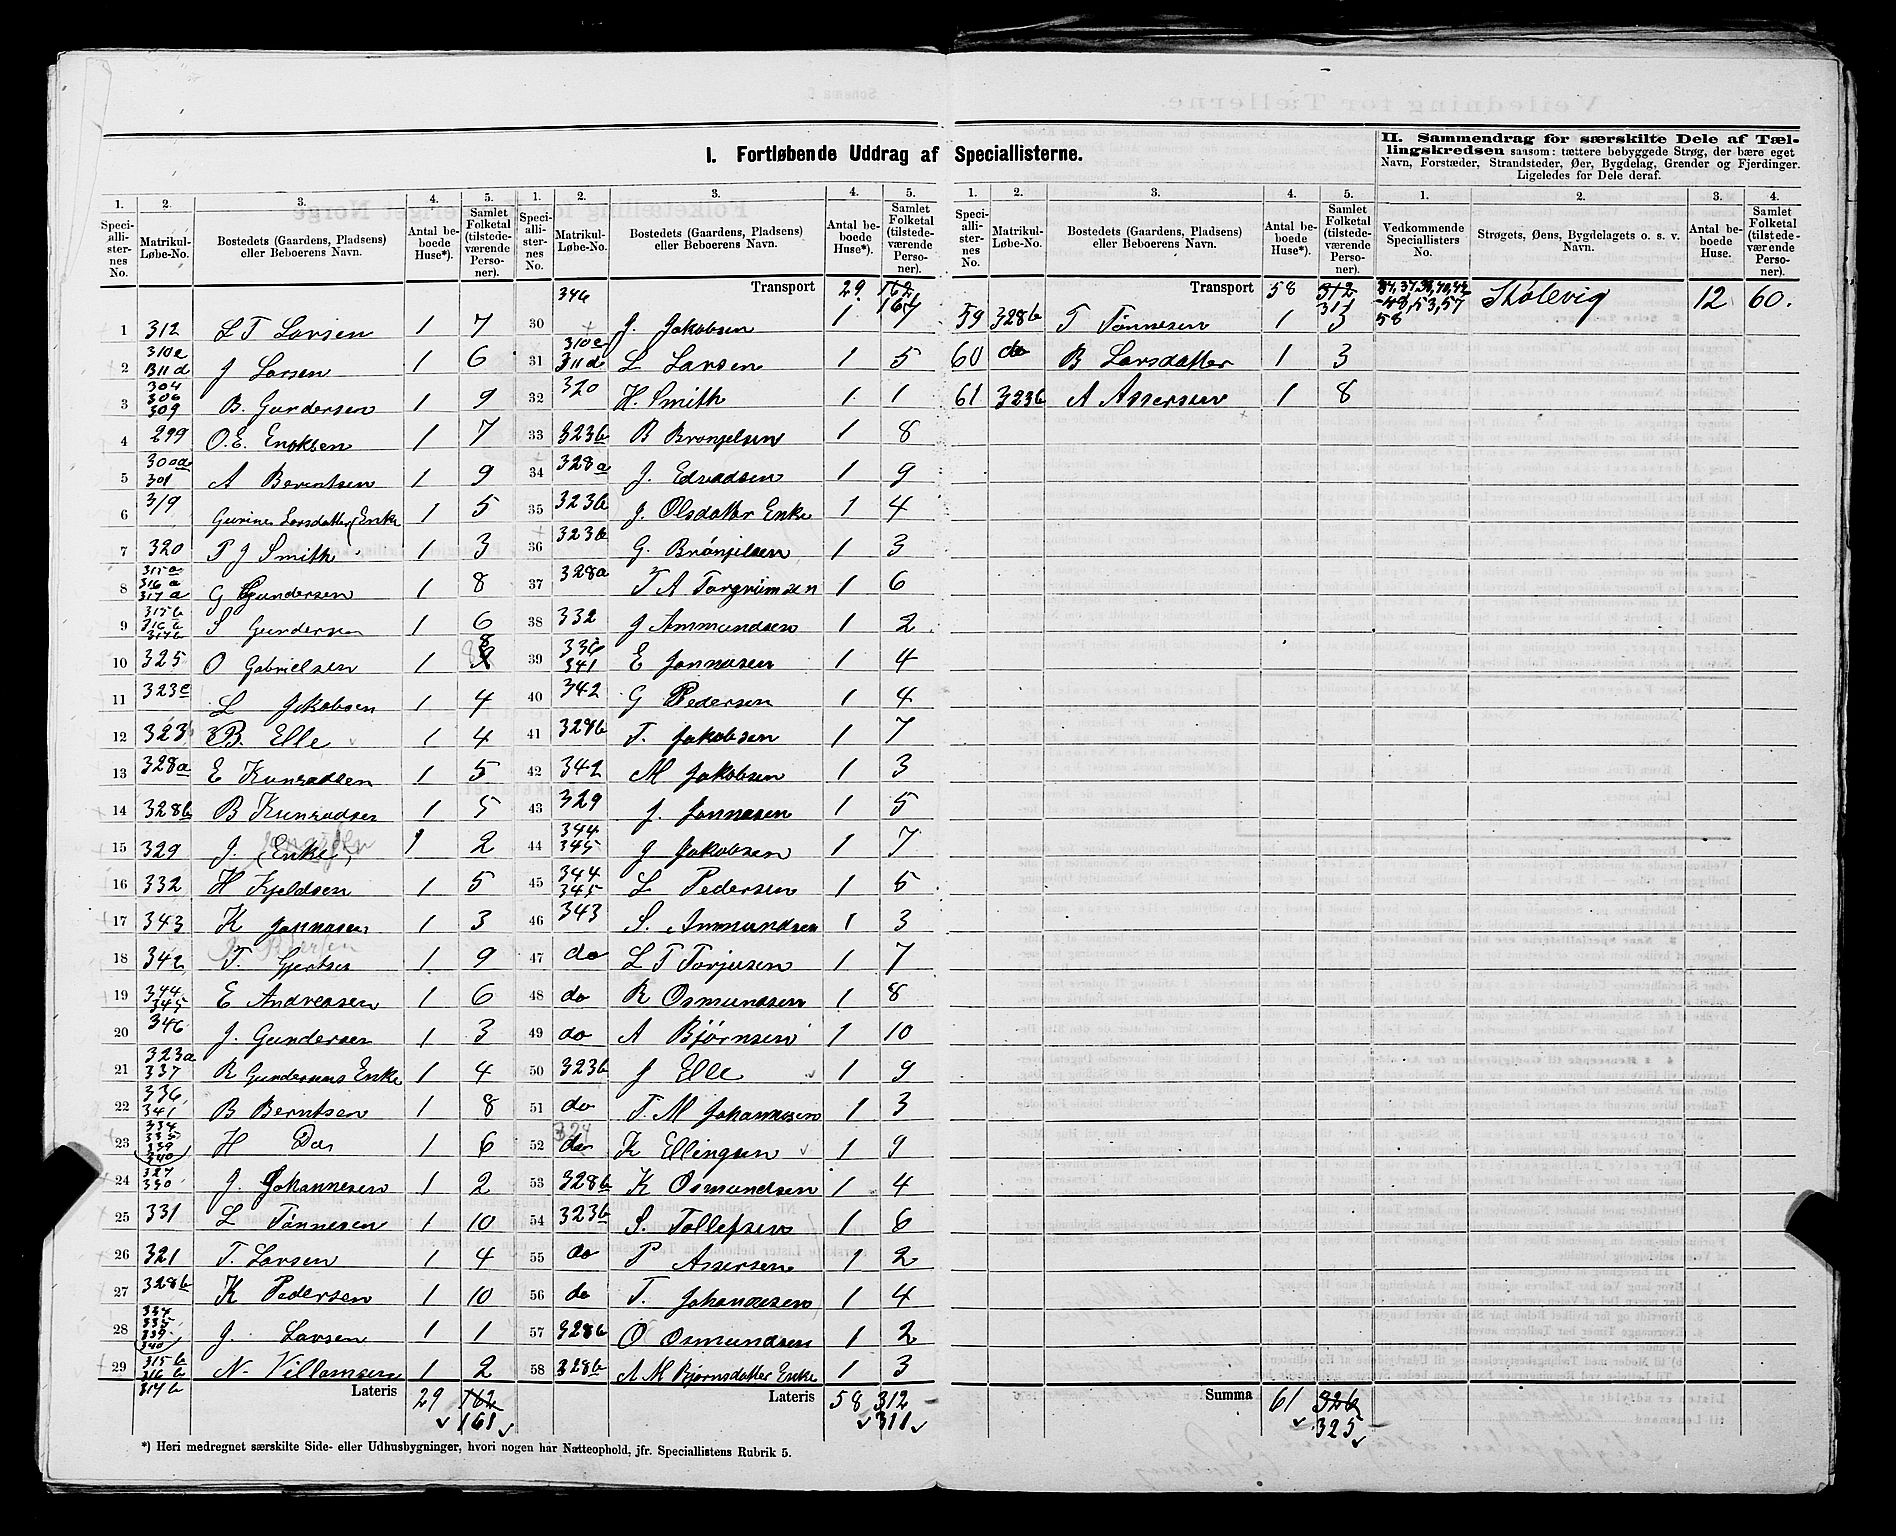 I. Fortløbende Uddrag af Speciallisterne.
II. Sammendrag for særskilte Dele af Tællingskredsen saasom: tættere bebyggede Strøg, der bære eget Navn, Forstæder, Strandsteder, Øer, Bygdelag, Grender og Fjerdinger. Ligeledes for Dele deraf.
1. 2. 3. 4. 5.
Speciallisternes No. Matrikul-Løbe-No. Bostedets (Gaardens, Pladsens) eller Beboerens Navn. Antal beboede Huse*). Samlet Folketal (tilstedeværende Personer).
1 312 L T Larsen 1 7
2 310e 311d J Larsen 1 6
3 304 306 309 B. Gundersen 1 9
4 299 O. E. Enoksen 1 7
5 300a 301 A Berentsen 1 9
6 319 Gurine Larsdatter Enke 1 5
7 320 P J Smith 1 3
8 315a 316a 317a G Gundersen 1 8
9 315b 316b 317b S Gundersen 1 6
10 325 O Gabrielsen 1 8
11 323c L Jakobsen 1 4
12 323 B. Elle 1 4
13 328a E Kunradsen 1 5
14 328b B Kunradsen 1 5
15 329 J. (Enke) 1 2
16 332 H Kjeldsen 1 5
17 343 K Jonnasen 1 3
18 342 T. Gjertsen 1 9
19 344 345 E Andreasen 1 6
20 346 J. Gundersen 1 3
21 323a 337 R Gundersens Enke 1 4
22 336 341 B Berntsen 1 8
23 334 335 339 340 H Das 1 6
24 327 330 J. Johannesen 1 2
25 331 L Tønnesen 1 10
26 321 T. Larsen 1 4
27 328b K Pedersen 1 10
28 334 335 339 340 J. Larsen 1 1
29 315b 316b 317b N. Villamsen 1 2
Lateris 29 162 161
1. 2. 3. 4. 5.
Speciallisternes No. Matrikul-Løbe-No. Bostedets (Gaardens, Pladsens) eller Beboerens Navn. Antal beboede Huse*). Samlet Folketal (tilstedeværende Personer).
Transport 29 162 161
30 346 J. Jakobsen 1 7
31 310e 311d L Larsen 1 5
32 320 H. Smith 1 1
33 323b B Bronjelsen 1 8
34 328a J. Edvadsen 1 9
35 323b J. Olsdatter Enke 1 4
36 323b G. Brønjelsen 1 3
37 328a T A Torgrimsen 1 6
38 332 J Ammundsen 1 2
39 336 341 E Jonnasen 1 4
40 342 G Pedersen 1 4
41 328b T. Jakobsen 1 7
42 342 M Jakobsen 1 3
43 329 J. Jonnasen 1 5
44 344 345 J Jakobsen 1 7
45 344 345 L Pedersen 1 5
46 343 S. Ammundsen 1 3
47 do L T Torjusen 1 7
48 do R Osmundsen 1 8
49 do A Bjørnsen 1 10
50 323b J Elle 1 9
51 do T. M Johannesen 1 3
52 do 324 K Ellingsen 1 9
53 328b K Osmundsen 1 4
54 323b S. Tollefsen 1 6
55 do P Assersen 1 2
56 do T. Johannesen 1 4
57 328b O Osmundsen 1 2
58 328b A M Bjørnsdatter Enke 1 3
Lateris 58 312 311
1. 2. 3. 4. 5.
Speciallisternes No. Matrikul-Løbe-No. Bostedets (Gaardens, Pladsens) eller Beboerens Navn. Antal beboede Huse*). Samlet Folketal (tilstedeværende Personer).
Transport 58 312 311
59 328b T Tønnesen 1 3
60 do B Larsdatter 1 3
61 323b A Assersen 1 8
Summa 61 326 325
1. 2. 3. 4.
Vedkommende Speciallisters No. Strøgets, Øens, Bygdelagets o. s. v. Navn. Antal beboede Huse. Samlet Folketal (tilstedeværende Personer).
-48, 53, 57 58 Skålevig 12 60.
*) Heri medregnet særskilte Side- eller Udhusbygninger, hvori nogen har Natteophold, jfr. Speciallistens Rubrik 5.